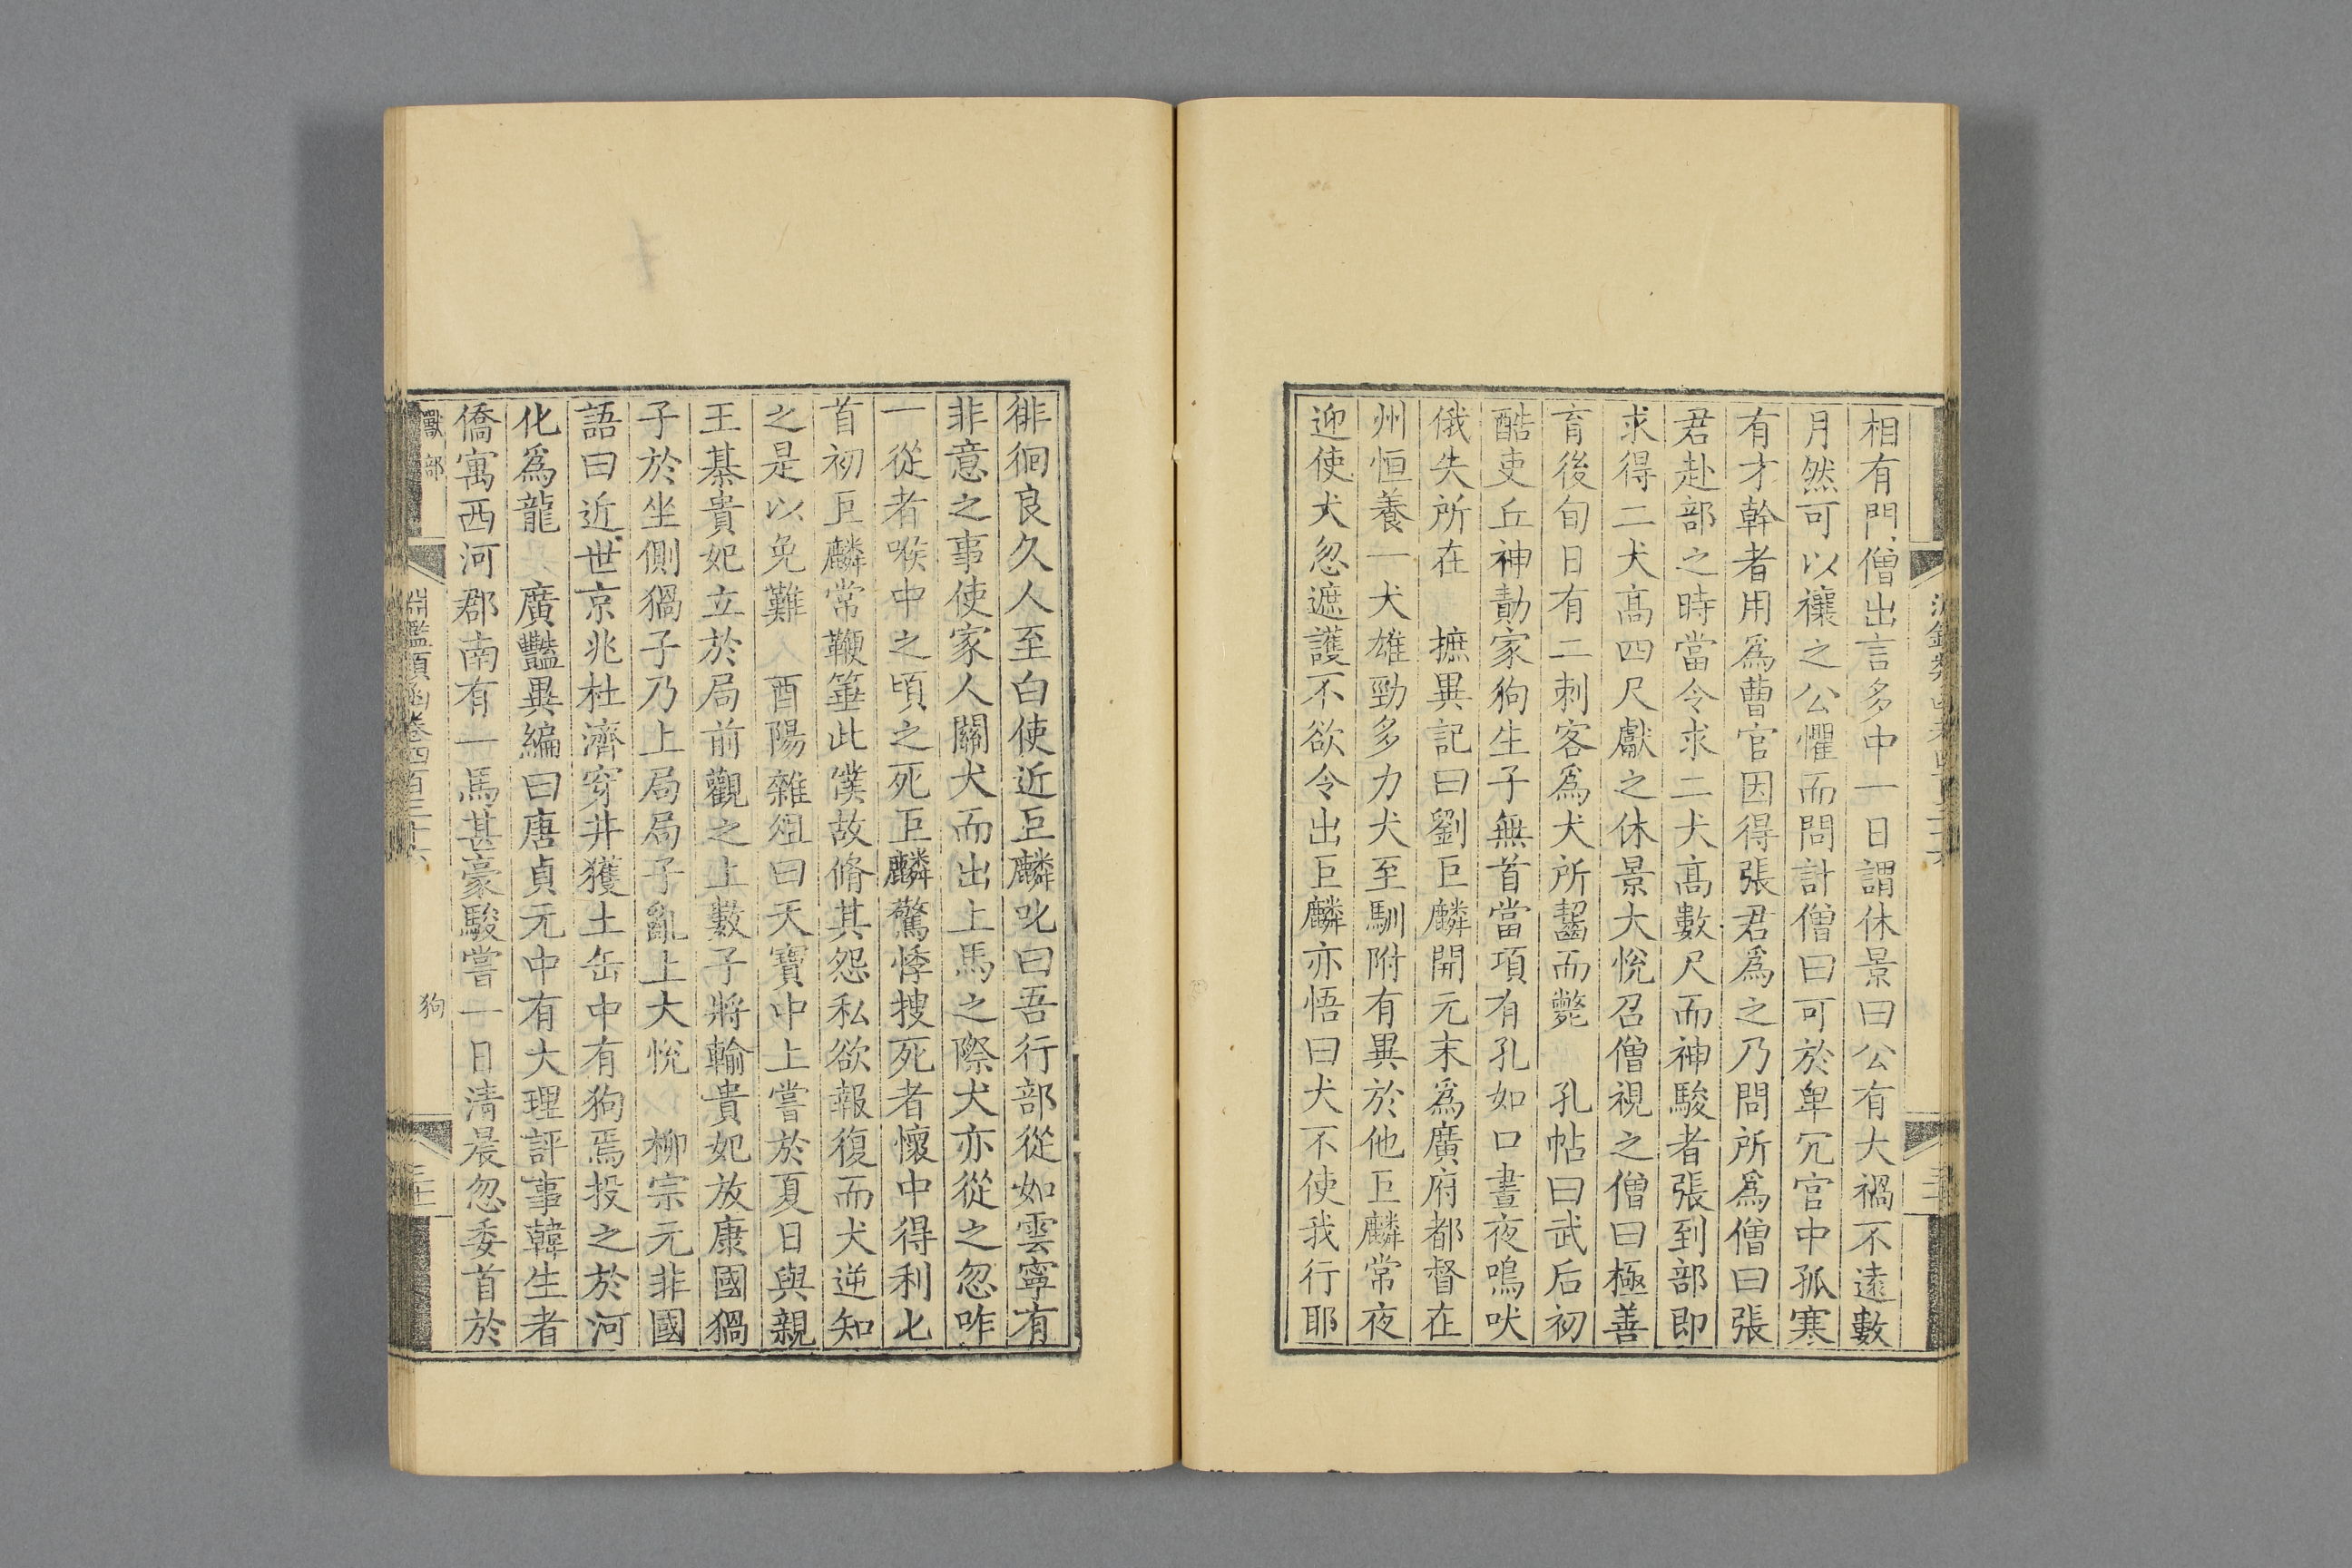 相有門僧出言多中一日謂休景曰公有大禍不遠數
月然可以禳之公懼而問計僧曰可於卑冗官中孤寒
有才幹者用爲曹官因得張君爲之乃問所爲僧曰張
君赴部之時當令求二犬高數尺而神駿者張到部即
求得二犬高四尺獻之休景大悅召僧視之僧曰極善
育後旬日有二刺客爲犬所齧而斃 孔帖曰武后初
酷吏丘神勣家狗生子無首當項有孔如口晝夜鳴吠
俄失所在 摭異記曰劉巨麟開元末爲廣府都督在
州恒養一犬雄勁多力犬至馴附有異於他巨麟常夜
迎使犬忽遮護不欲令出巨麟亦悟曰犬不使我行耶
徘徊良久人至白使近巨麟叱曰吾行部從如雲寧有
非意之事使家人關犬而出上馬之際犬亦從之忽咋
一從者喉中之頃之死巨麟驚悸搜死者懷中得利匕
首初巨麟常鞭箠此僕故脩其怨私欲報復而犬逆知
之是以免難 酉陽雜俎曰天寶中上嘗於夏日與親
王棊貴妃立於局前觀之上數子將輸貴妃放康國猧
子於坐側猧子乃上局局子亂上大悅 柳宗元非國
語曰近世京兆杜濟穿井獲土缶中有狗焉投之於河
化爲龍 廣豔異編曰唐貞元中有大理評事韓生者
僑寓西河郡南有一馬甚豪駿嘗一日清晨忽委首於
獸部 淵鑑類函卷四百三十六 狗